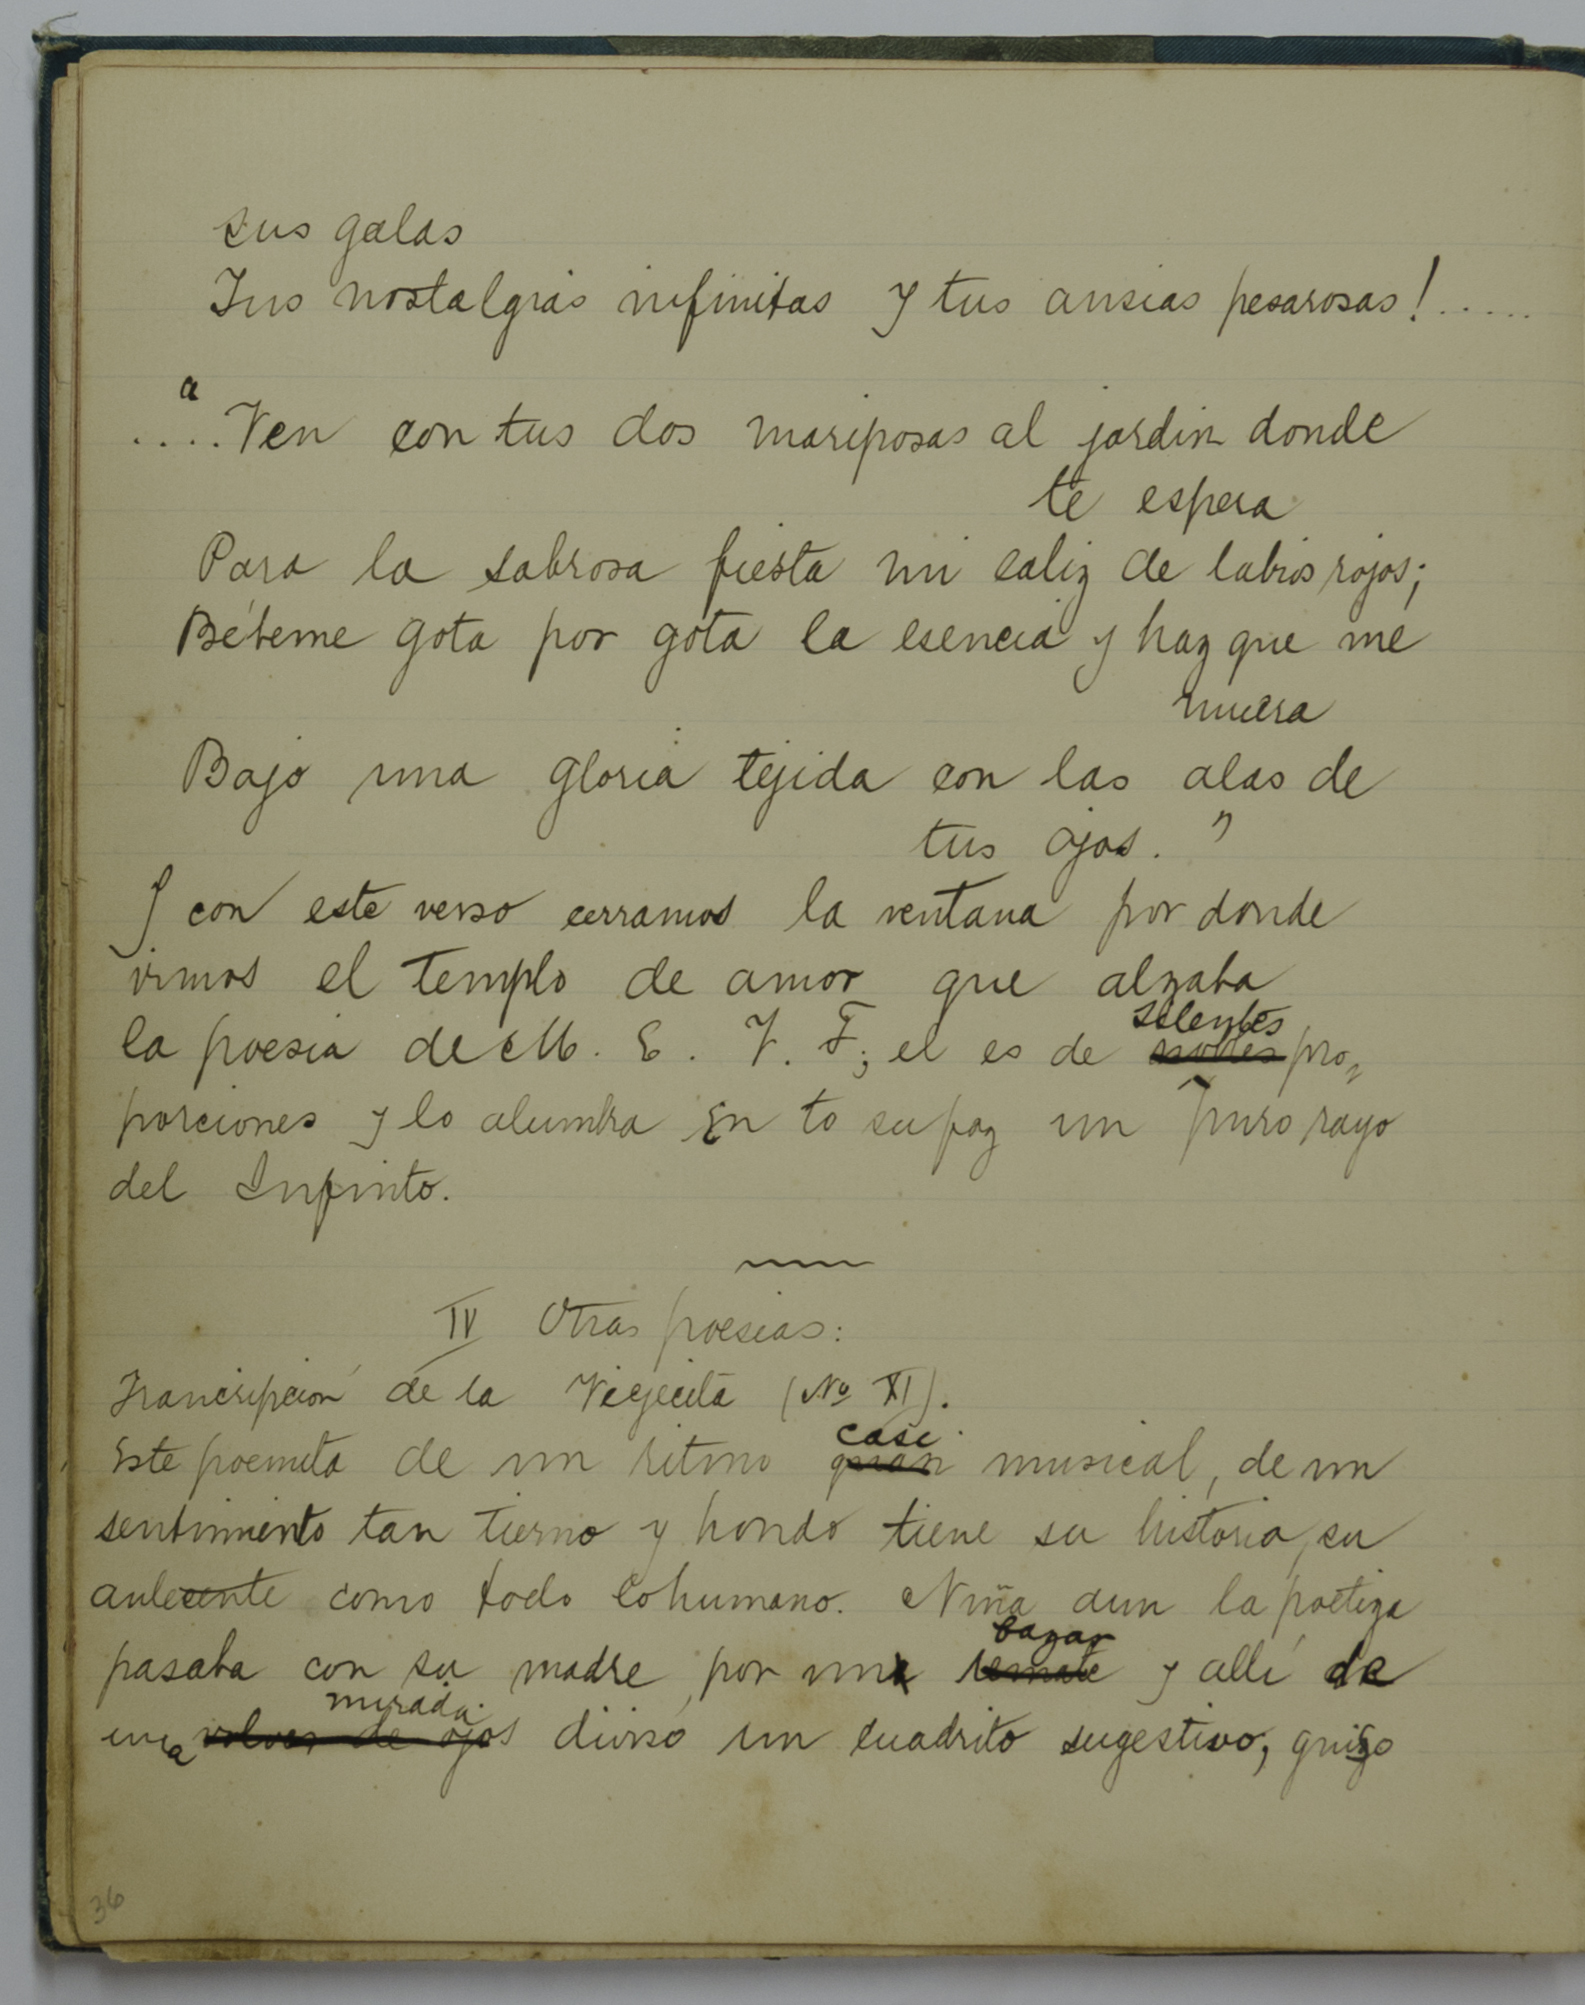 sus galas
Tus nostalgias infinitas y tus ansias pesarosas!.....
"
....Ven con tus dos mariposas al jardin donde
te espera
Para la sabrosa fiesta mi caliz de labios rojos;
Bébeme gota por gota la esencia y haz que me
muera
Bajo una gloria tejida con las alas de
tus ojos."
Y con este verso cerramos la ventana por donde
vimos el templo de amor que alzaba
la poesia de M. E. V. F; el es de pro-
porciones y lo alumbra en to su paz un puro rayo
del Infinto.
IV Otras poesias:
Trancripción de la Viejecita (No XI).
casi
Este poemita de un ritmo gran musical, de un
sentimiento tan tierno y hondo tiene su historia, su
como todo lo humano. Niña aun la poetiza
bazar
pasaba con su madre, por una remate y allí de
mirada
una volver de ojos diviso un cuadrito sugestivo, quizo
36